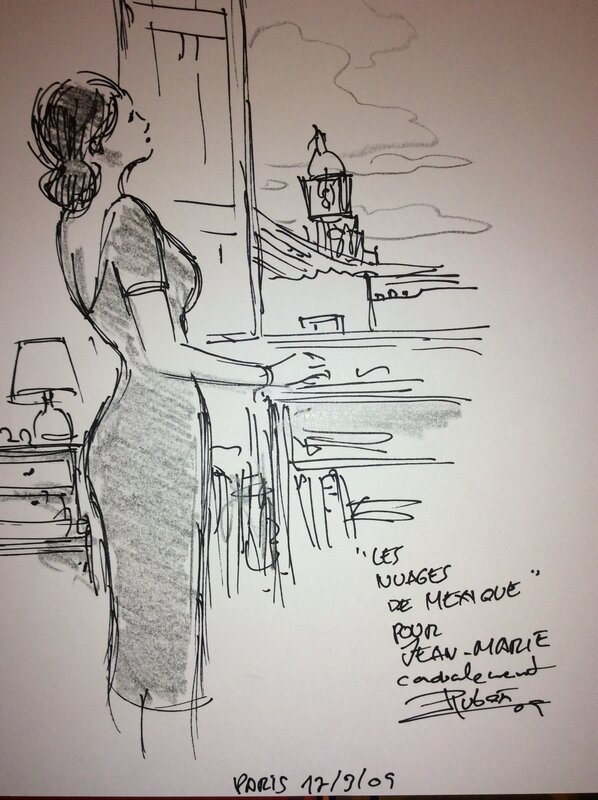 "LES
NUAGES
DE MEXIQUE"
POUR
JEAN-MARIE
cordialement
Rubén 09
PARIS 12/9/09